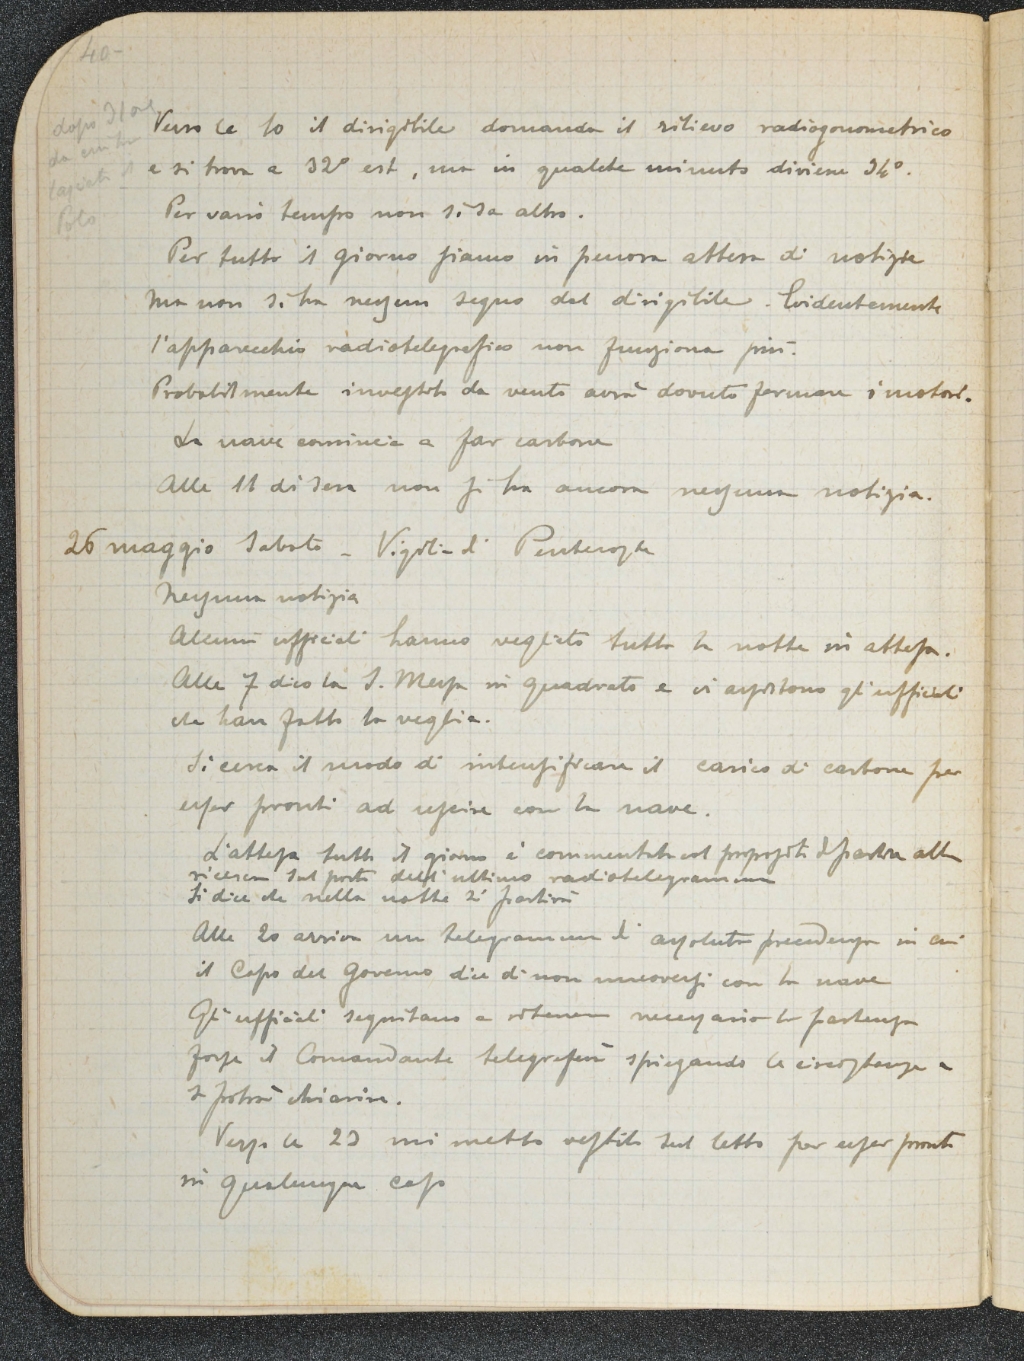 40-
dopo 31 ore
da cui ha
lasciato il
Polo
Verso le 10 il dirigibile domanda il rilievo radiogonometrico
e si trova a 32° est, ma in qualche minuto diviene 34°.
Per vario tempo non si sa altro.
Per tutto il giorno siamo in penosa attesa di notizie
ma non si ha nessun segno del dirigibile. Evidentemente
l'apparecchio radiotelegrafico non funziona più.
Probabilmente investito da vento avrà dovuto fermare i motori.
La nave comincia a far carbone
Alle 11 di sera non si ha ancora nessuna notizia.
26 maggio Sabato - Vigilia di Pentecoste
Nessuna notizia
Alcuni ufficiali hanno vegliato tutta la notte in attesa.
Alle 7 dico la S. Messa in quadrato e vi assistono gli ufficiali
che han fatto la veglia.
Si cerca il modo di intensificare il carico di carbone per
esser pronti ad uscire con la nave.
L'attesa tutto il giorno è commentata col proposito di partire alla
ricerca sul posto dell'ultimo radiotelegramma
Si dice che nella notte si partirà
Alle 20 arriva un telegramma di assoluta precedenza in cui
il Capo del Governo dice di non muoversi con la nave
Gli ufficiali seguitano a ritenere necessaria la partenza
forse il Comandante telegraferà spiegando le circostanze e
si potrà chiarire.
Verso le 23 mi metto vestito sul letto per esser pronto
in qualunque caso